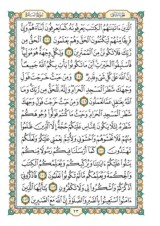 الَّذِينَ آتَيْنَاهُمُ الْكِتَابَ يَعْرِفُونَهُ كَمَا يَعْرِفُونَ أَبْنَاءَهُمْ وَإِنَّ
فَرِيقًا مِنْهُمْ لَيَكْتُمُونَ الْحَقَّ وَهُمْ يَعْلَمُونَ الْحَقُّ مِنْ
رَبِّكَ فَلَا تَكُونَنَّ مِنَ الْمُمْتَرِينَ وَلِكُلٍّ وِجْهَةٌ هُوَ مُوَلِّيهَا
فَاسْتَبِقُوا الْخَيْرَاتِ أَيْنَ مَا تَكُونُوا يَأْتِ بِكُمُ اللَّهُ جَمِيعًا
إِنَّ اللَّهَ عَلَى كُلِّ شَيْءٍ قَدِيرٌ وَمِنْ حَيْثُ خَرَجْتَ فَوَلِّ
وَجْهَكَ شَطْرَ الْمَسْجِدِ الْحَرَامِ وَإِنَّهُ لَلْحَقُّ مِنْ رَبِّكَ وَمَا
اللَّهُ بِغَافِلٍ عَمَّا تَعْمَلُونَ وَمِنْ حَيْثُ خَرَجْتَ فَوَلِّ وَجْهَكَ
شَطْرَ الْمَسْجِدِ الْحَرَامِ وَحَيْثُ مَا كُنْتُمْ فَوَلُّوا وُجُوهَكُمْ
شَطْرَهُ لِئَلَّا يَكُونَ لِلنَّاسِ عَلَيْكُمْ حُجَّةٌ إِلَّا الَّذِينَ ظَلَمُوا
مِنْهُمْ فَلَا تَخْشَوْهُمْ وَاخْشَوْنِي وَلِأُتِمَّ نِعْمَتِي عَلَيْكُمْ وَلَعَلَّكُمْ
تَهْتَدُونَ كَمَا أَرْسَلْنَا فِيكُمْ رَسُولًا مِنْكُمْ يَتْلُو
عَلَيْكُمْ آيَاتِنَا وَيُزَكِّيكُمْ وَيُعَلِّمُكُمُ الْكِتَابَ
وَالْحِكْمَةَ وَيُعَلِّمُكُمْ مَا لَمْ تَكُونُوا تَعْلَمُونَ فَاذْكُرُونِي
أَذْكُرْكُمْ وَاشْكُرُوا لِي وَلَا تَكْفُرُونِ يَا أَيُّهَا الَّذِينَ
آمَنُوا اسْتَعِينُوا بِالصَّبْرِ وَالصَّلَاةِ إِنَّ اللَّهَ مَعَ الصَّابِرِينَ
٢٣